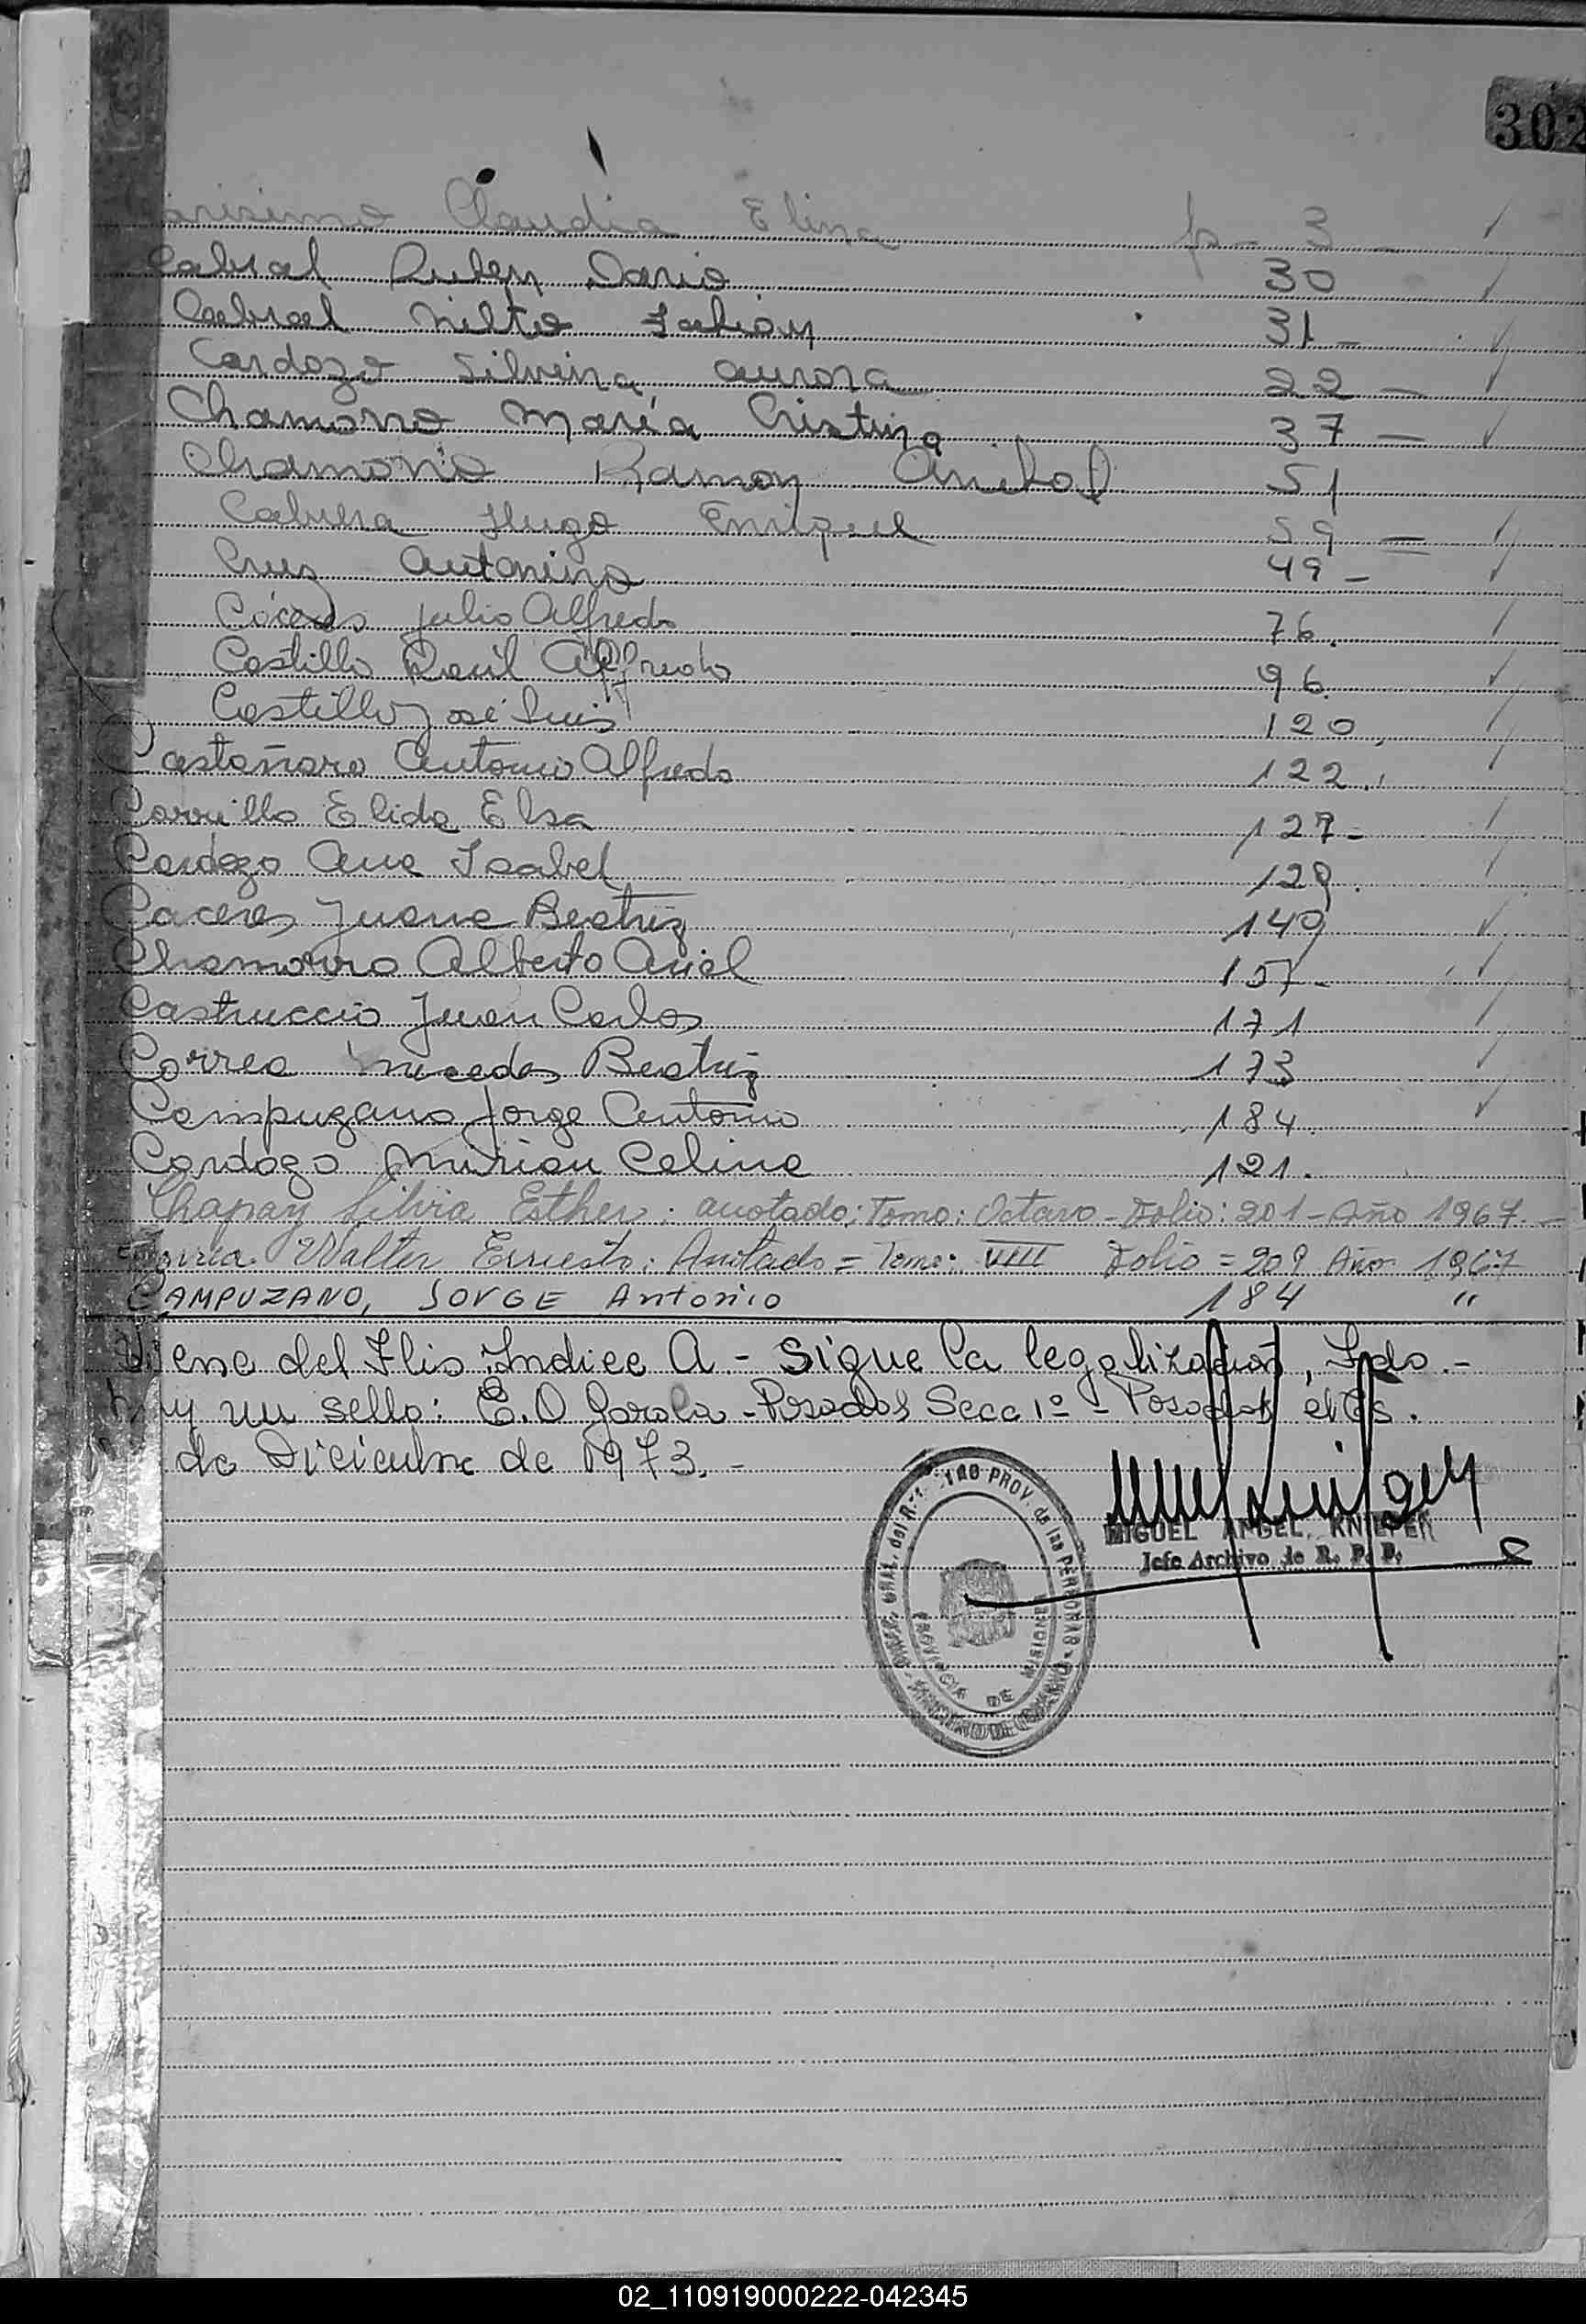 302
Claudia Elina p - 3 -
Cabral Ruben Dario 30
Cabral Milto Fabián 31 -
Cardozo Silvina Aurora 22 -
Chamorro María Cristina 37 -
Chamorro Ramon Anibal 51
Cabrera Hugo Enrique 59 =
Cruz Antonino 49 -
Cáceres Julio Alfredo 76.
Castillo Raúl Alfredo 96.
Castillo José Luis 120.
Castañaro Antonio Alfredo 122.
Carrillo Elida Elsa 127 -
Cardozo Ana Isabel 129.
Caceres Juana Beatriz 149
Chamorro Alberto Ariel 157 -
Castruccio Juan Carlos 171
Correa Mercedes Beatriz 173
Campuzano Jorge Antonio 184.
Cardozo Mirian Celina 121.
Chapay Silvia Esther: anotado: Tomo: Octavo - Folio: 201 - Año 1967. -
Walter Ernesto: Anotado = Tomo: VIIII Folio = 209 Año 1967
CAMPUZANO, JORGE Antonio 184 "
Viene del Flio Indice A - Sigue la legalizacion, Fdo. -
hay un sello: E.O Garola - Posadas Secc 1º - Posadas
de Diciembre de 1973. -
MIGUEL ANGEL KNIEPER
Jefe Archivo de R. P. P.
GRAL. del PROV. de las PERSONAS
PROVINCIA DE MISIONES
02_110919000222-042345